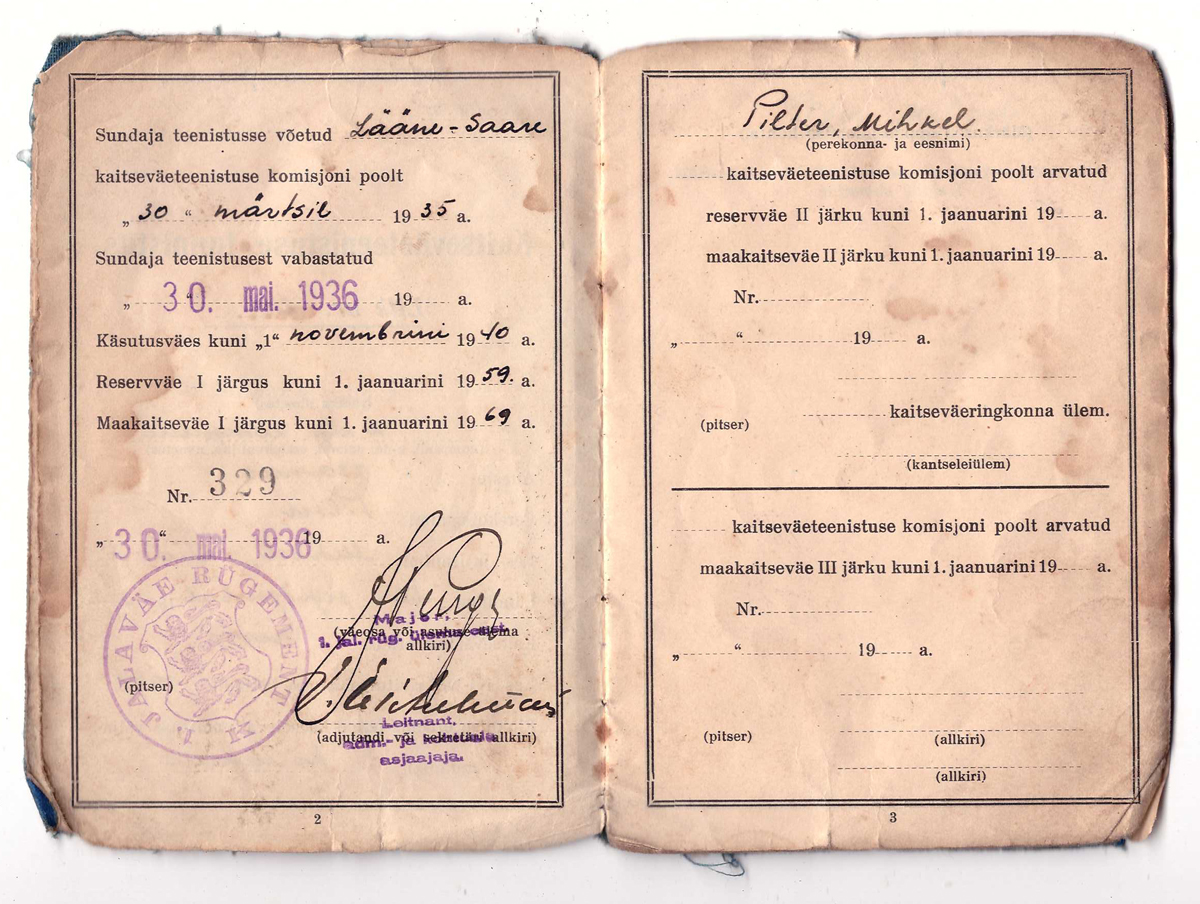 Sundaja teenistusse võetud Lääne-Saare
kaitseväeteenistuse komisjoni poolt
„ 30 “ märtsil 19 35 a.
Sundaja teenistusest vabastatud
„ 30. mai. 1936 19 a.
Käsutusväes kuni „1“ novembrini 19 40 a.
Reservväe I järgus kuni 1. jaanuarini 19 59. a.
Maakaitseväe I järgus kuni 1. jaanuarini 19 69 a.
Nr. 329
„ 30. “ mai. 1936 19 a.
1. JALAVÄE RÜGEMENT
Major,
(väeosa või asutuse ülema
1. jal. rüg. ülema eest.
allkiri)
(pitser)
Leitnant,
(adjutandi või sekretäri allkiri)
adm.- ja
asjaajaja.
2
Pilter, Mihkel
(perekonna- ja eesnimi)
kaitseväeteenistuse komisjoni poolt arvatud
reservväe II järku kuni 1. jaanuarini 19 a.
maakaitseväe II järku kuni 1. jaanuarini 19 a.
Nr.
„ “ 19 a.
kaitseväeringkonna ülem.
(pitser)
(kantseleiülem)
kaitseväeteenistuse komisjoni poolt arvatud
maakaitseväe III järku kuni 1. jaanuarini 19 a.
Nr.
„ “ 19 a.
(pitser) (allkiri)
(allkiri)
3